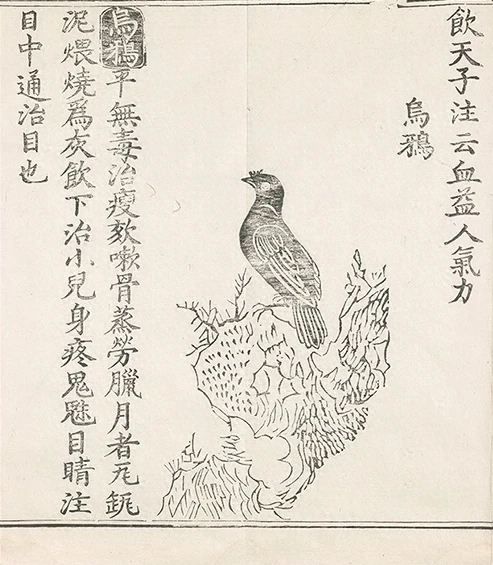 飲天子注云血益人氣力
烏鴉
烏鴉平無毒治瘦欬嗽骨蒸勞臘月者瓦缾
泥煨燒爲灰飲下治小兒身疼鬼魅目睛注
目中通治目也